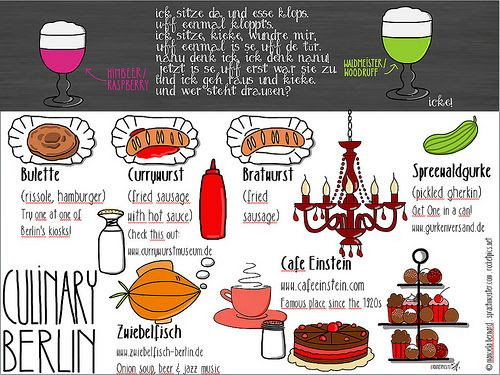 ick sitze da und esse klops.
uff eenmal kloppts.
ick sitze, kieke, wundre mir,
uff eenmal is se uff de tür.
nanu denk ick, ick denk nanu!
jetzt is se uff erst war sie zu
und ick geh raus und kieke.
und wer steht draußen?
icke!
HIMBEER/
RASPBERRY
WALDMEISTER/
WOODRUFF
Bulette
(rissole, hamburger)
Try one at one of
Berlin's kiosks!
Currywurst
(fried sausage
with hot sauce)
Check this out:
www.currywurstmuseum.de
Bratwurst
(fried
sausage)
Spreewaldgurke
(pickled gherkin)
Get One in a can!
www.gurkenversand.de
CULINARY
BERLIN
Zwiebelfisch
www.zwiebelfisch-berlin.de
Onion soup, beer & jazz music
Cafe Einstein
www.cafeeinstein.com
Famous place since the 1920s